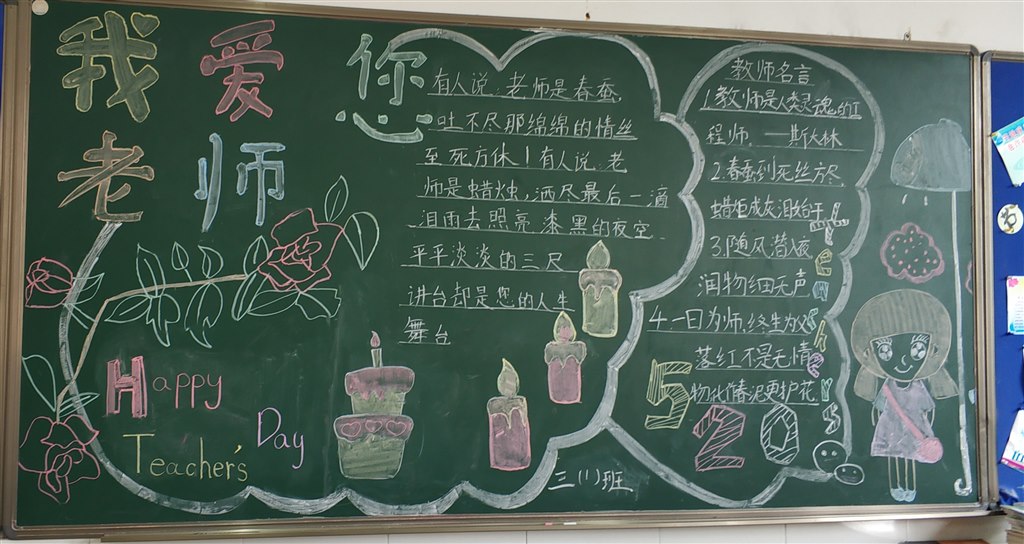 我爱您
老师
有人说：老师是春蚕，
吐不尽那绵绵的情丝
至死方休！有人说：老
师是蜡烛，洒尽最后一滴
泪雨去照亮漆黑的夜空
平平淡淡的三尺
讲台却是您的人生
舞台
教师名言
1.教师是人类灵魂的工
程师. —斯大林
2.春蚕到死丝方尽
蜡炬成灰泪始干
3.随风潜入夜
润物细无声
4.一日为师,终生为父
落红不是无情
物化作春泥更护花
520
Happy
Teacher's
Day
三(1)班